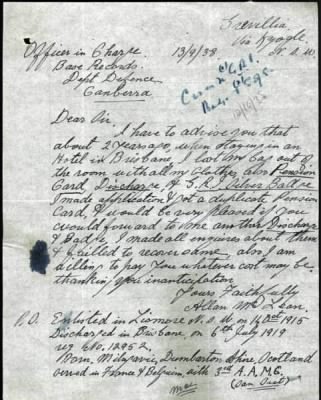 Grevillia
Via Kyogle
N.S.W
Officer in Charge 13/9/38
Base Records
Dept Defence
Canberra
Dear Sir,
I have to advise you that
about 2 years ago, when staying in an
Hotel in Brisbane, I lost my bag out of
the room with all my clothes, also Pension
Card, Discharge, & Silver Badge
I made application & got a duplicate Pension
Card, & would be very pleased if you
would forward to me another Discharge
& Badge, I made all enquires about them
& failed to recover same, also I am
willing to pay you whatever cost may be,
thanking you in anticipation
Yours Faithfully
Allan McLean
P.O. Enlisted in Lismore N.S.W on 16 Oct 1915
Discharged in Brisbane, on 6th July 1919
reg No. 12952
Born, Milngavie, Dumbarton Shire, Scotland
served in France & Belgium, with 3rd A.A.M.C.
(San Sect)